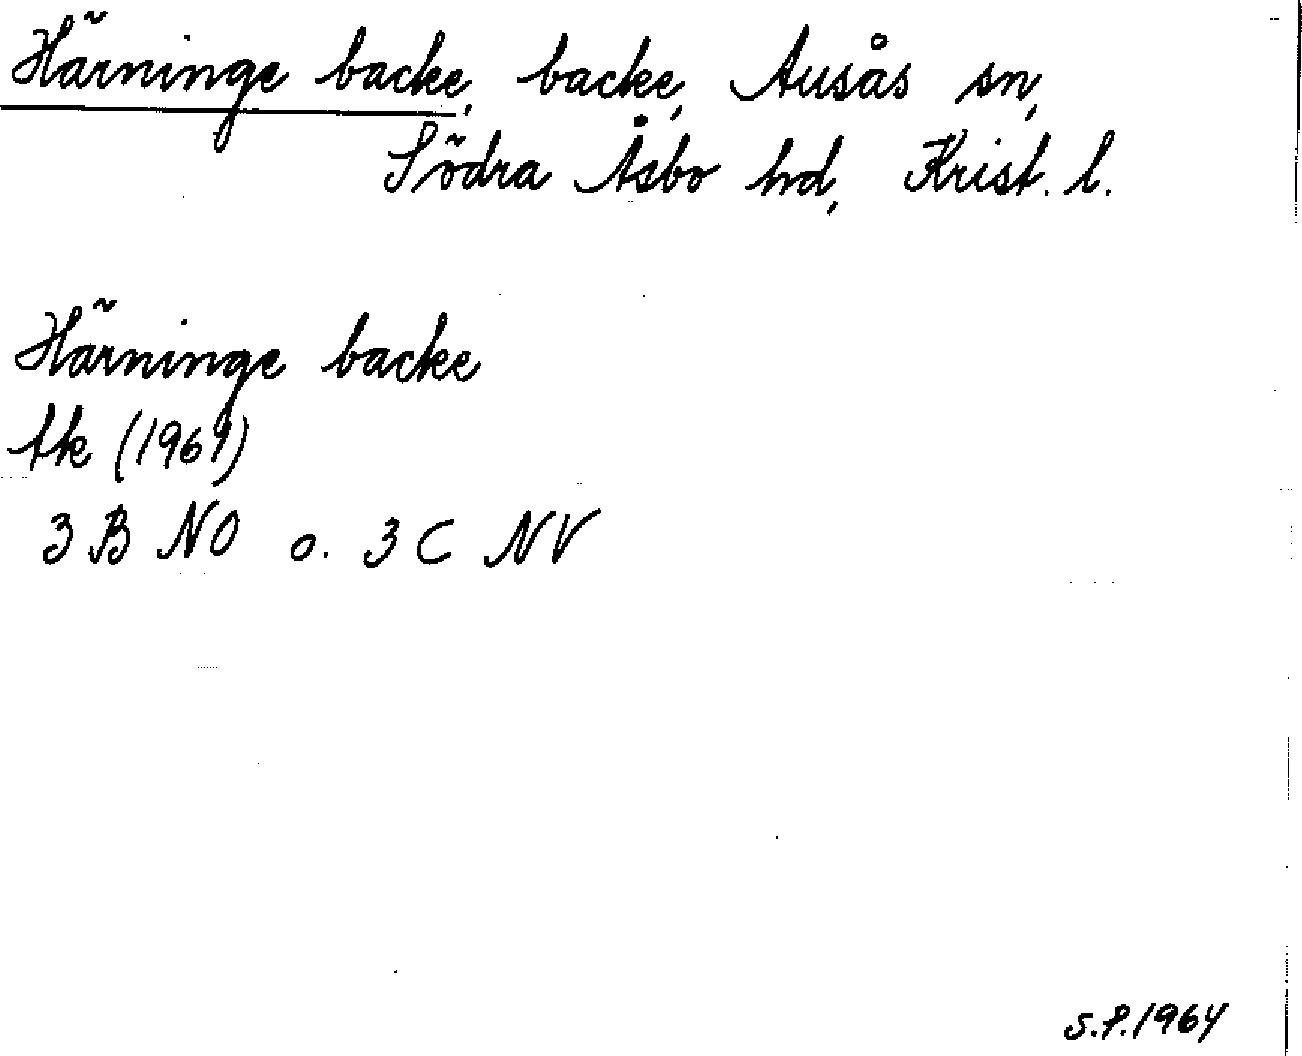 Härninge backe, backe, Ausås sn,
Södra Åsbo hd, Krist. l.
Härninge backe
tk (1969)
3B NO o. 3C NV
S.P. 1964